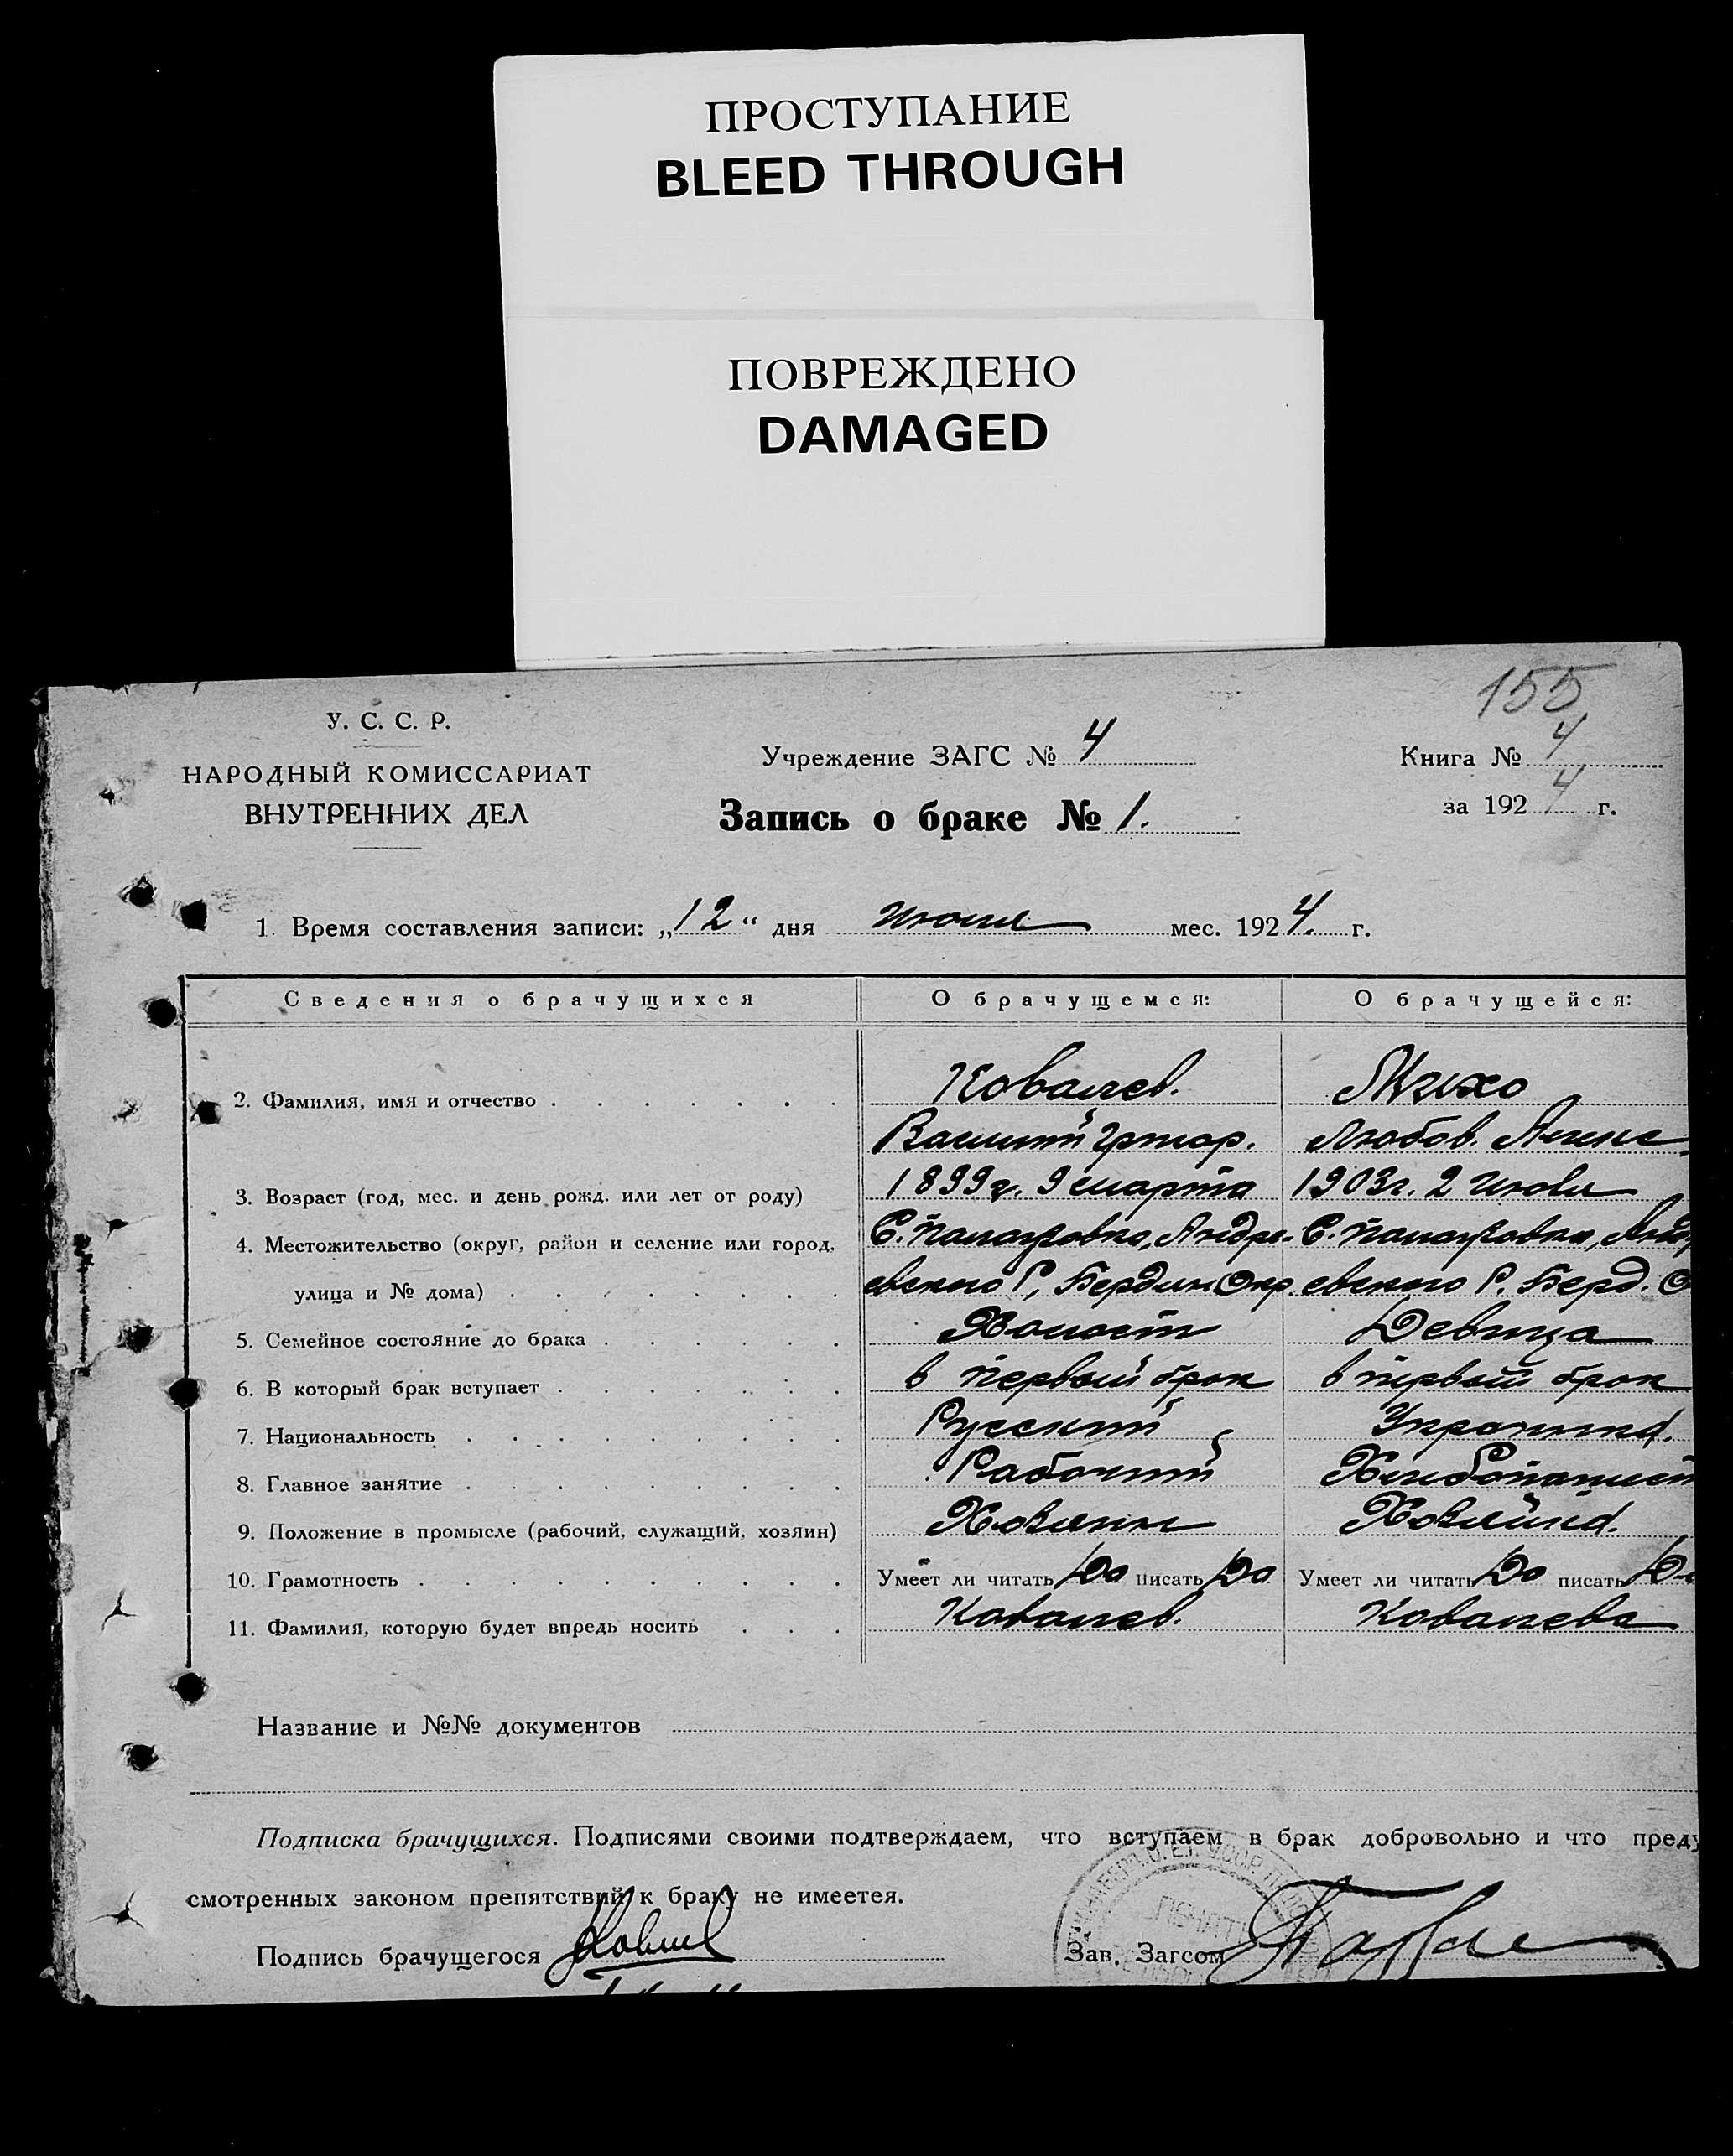 ПРОСТУПАНИЕ
BLEED THROUGH
ПОВРЕЖДЕНО
DAMAGED
155
У. С. С. Р.
НАРОДНЫЙ КОМИССАРИАТ
ВНУТРЕННИХ ДЕЛ
Учреждение ЗАГС № 4
Книга № 4
за 1924 г.
Запись о браке № 1.
1. Время составления записи: „12“ дня мес. 1924. г.
Сведения о брачущихся О брачущемся: О брачущейся:
2. Фамилия, имя и отчество Ковалев.
Василий Григор. Любов. Алекс
3. Возраст (год, мес. и день рожд. или лет от роду) 1899 г. 9 марта 1903 г. 2
4. Местожительство (округ, район и селение или город, С. Андре- С.
улица и № дома) евского Р, Бердян. Окр. евского Р. Берд. О
5. Семейное состояние до брака Холост Девица
6. В который брак вступает в первый брак в первый брак
7. Национальность Русский Украинка.
8. Главное занятие Рабочий
9. Положение в промысле (рабочий, служащий, хозяин) Хозяин
10. Грамотность Умеет ли читать Да писать Да Умеет ли читать Да писать Да
11. Фамилия, которую будет впредь носить Ковалев. Ковалева
Название и №№ документов
Подписка брачущихся. Подписями своими подтверждаем, что вступаем в брак добровольно и что преду
смотренных законом препятствий к браку не имеетея.
Подпись брачущегося Зав. Загсом